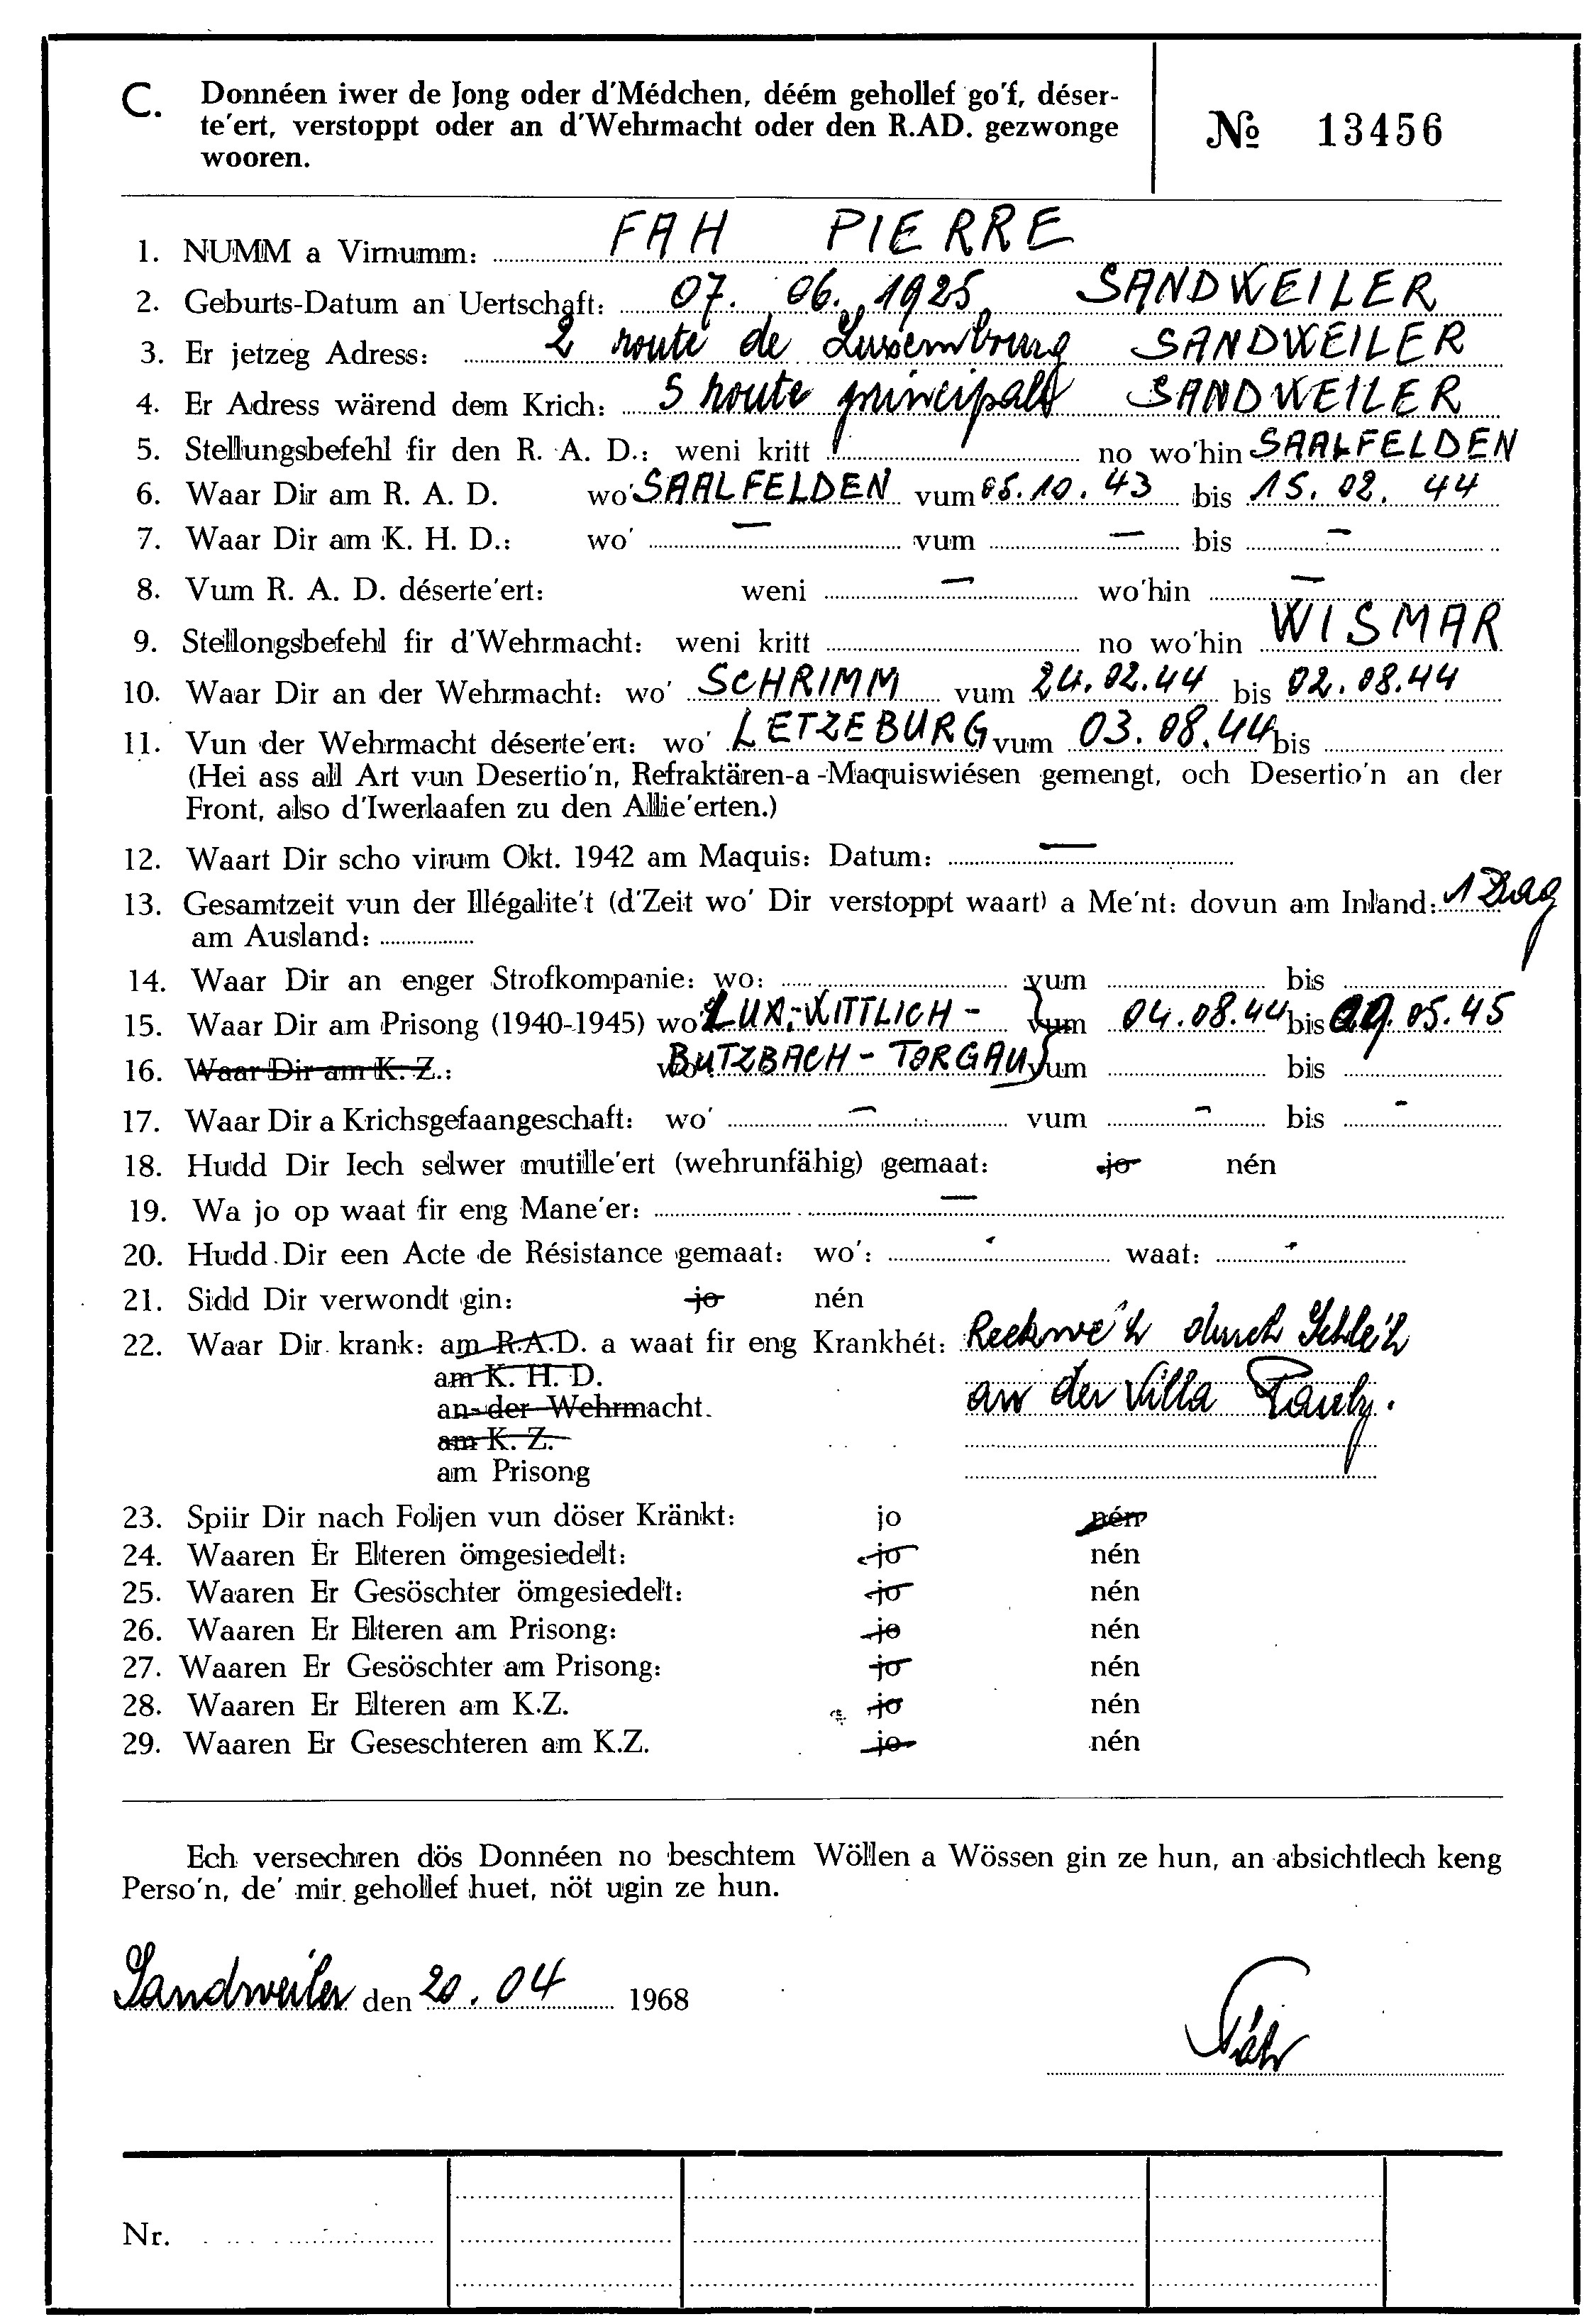 C. Donnéen iwer de Jong oder d'Médchen, déém gehollef go'f, déser-
te'ert, verstoppt oder an d'Wehrmacht oder den R.AD. gezwonge
wooren.
№ 13456
1. NUMM a Virnumm: FAH PIERRE
2. Geburts-Datum an Uertschaft: 07. 06. 1925 SANDWEILER
3. Er jetzeg Adress: 2 route de Luxembourg SANDWEILER
4. Er Adress wärend dem Krich: 5 route principale SANDWEILER
5. Stellungsbefehl fir den R. A. D.: weni kritt no wo'hin SAALFELDEN
6. Waar Dir am R. A. D. wo' SAALFELDEN vum 05.10.43 bis 15.02.44
7. Waar Dir am K. H. D.: wo' — vum — bis —
8. Vum R. A. D. déserte'ert: weni — wo'hin —
9. Stellongsbefehl fir d'Wehrmacht: weni kritt no wo'hin WISMAR
10. Waar Dir an der Wehrmacht: wo' SCHRIMM vum 24.02.44 bis 02.08.44
11. Vun der Wehrmacht déserte'ert: wo' LETZEBURG vum 03.08.44 bis
(Hei ass all Art vun Desertio'n, Refraktären-a-Maquiswiésen gemengt, och Desertio'n an der
Front, also d'Iwerlaafen zu den Allie'erten.)
12. Waart Dir scho virum Okt. 1942 am Maquis: Datum: —
13. Gesamtzeit vun der Illégalite't (d'Zeit wo' Dir verstoppt waart) a Me'nt: dovun am Inland: 1 Dag
am Ausland:
14. Waar Dir an enger Strofkompanie: wo: vum bis
15. Waar Dir am Prisong (1940-1945) wo' LUX.-WITTLICH - vum 04.08.44 bis 09.05.45
16. Waar Dir am K. Z.: wo' BUTZBACH - TORGAU vum bis
17. Waar Dir a Krichsgefaangeschaft: wo' — vum — bis -
18. Hudd Dir Iech selwer mutille'ert (wehrunfähig) gemaat: jo nén
19. Wa jo op waat fir eng Mane'er: —
20. Hudd Dir een Acte de Résistance gemaat: wo': - waat: -
21. Sidd Dir verwondt gin: jo nén
22. Waar Dir krank: am R.A.D. a waat fir eng Krankhét: Reckwéih durch Schléih
am K. H. D. an der Villa Pauly.
an der Wehrmacht.
am K. Z.
am Prisong
23. Spiir Dir nach Foljen vun döser Kränkt: jo nén
24. Waaren Er Elteren ömgesiedelt: jo nén
25. Waaren Er Gesöschter ömgesiedelt: jo nén
26. Waaren Er Elteren am Prisong: jo nén
27. Waaren Er Gesöschter am Prisong: jo nén
28. Waaren Er Elteren am K.Z. jo nén
29. Waaren Er Geseschteren am K.Z. jo nén
Ech versechren dös Donnéen no beschtem Wöllen a Wössen gin ze hun, an absichtlech keng
Perso'n, de' mir gehollef huet, nöt ugin ze hun.
Sandweiler den 20.04 1968
Fäh
Nr.